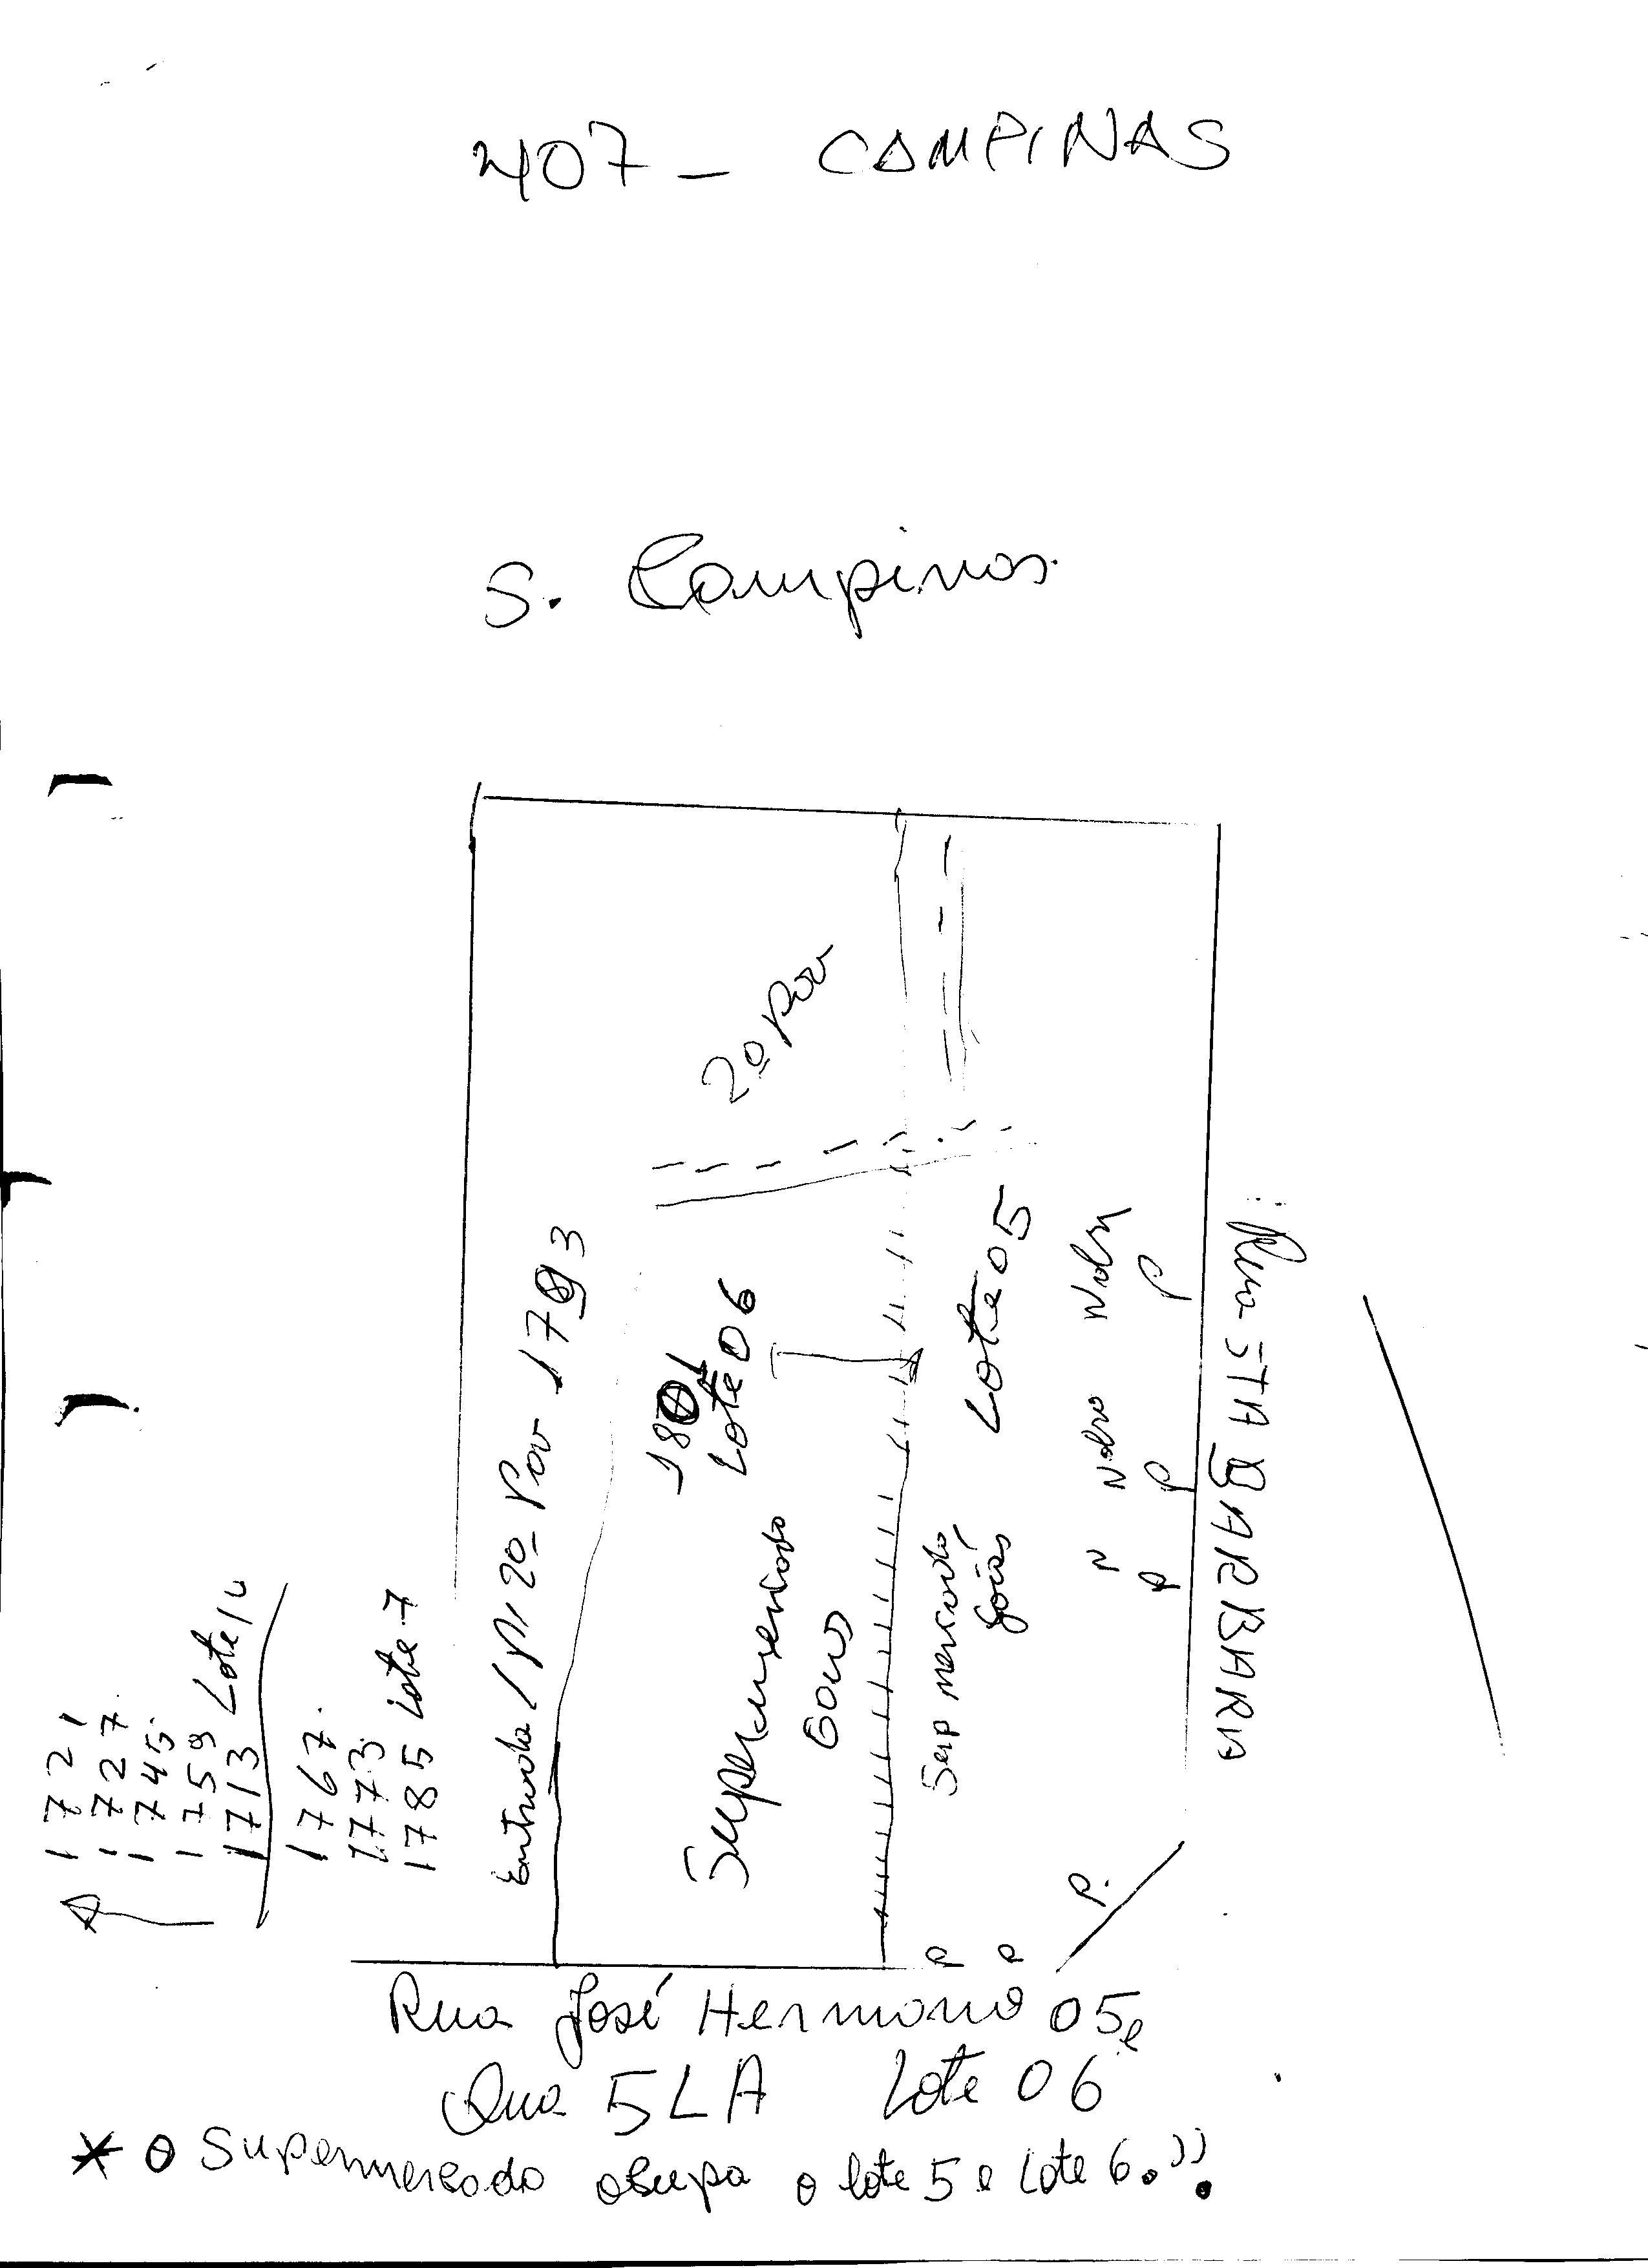 407 - CAMPINAS
S. Campinas
2º Pav
Entrada / p/ 2º Pav - 1793
1801
Lote 06
Supermercado
Goiás
Lote 05
Sup mercado
Goiás
P
P
P
Rua STA BARBARA
1721
1727
1745
1759
1713 Lote
1767
1773
1785 Lote 7
P P P.
Rua José Hermano 05 e
Qua 5LA Lote 06
* O Supermercado ocupa o lote 5 e Lote 6.